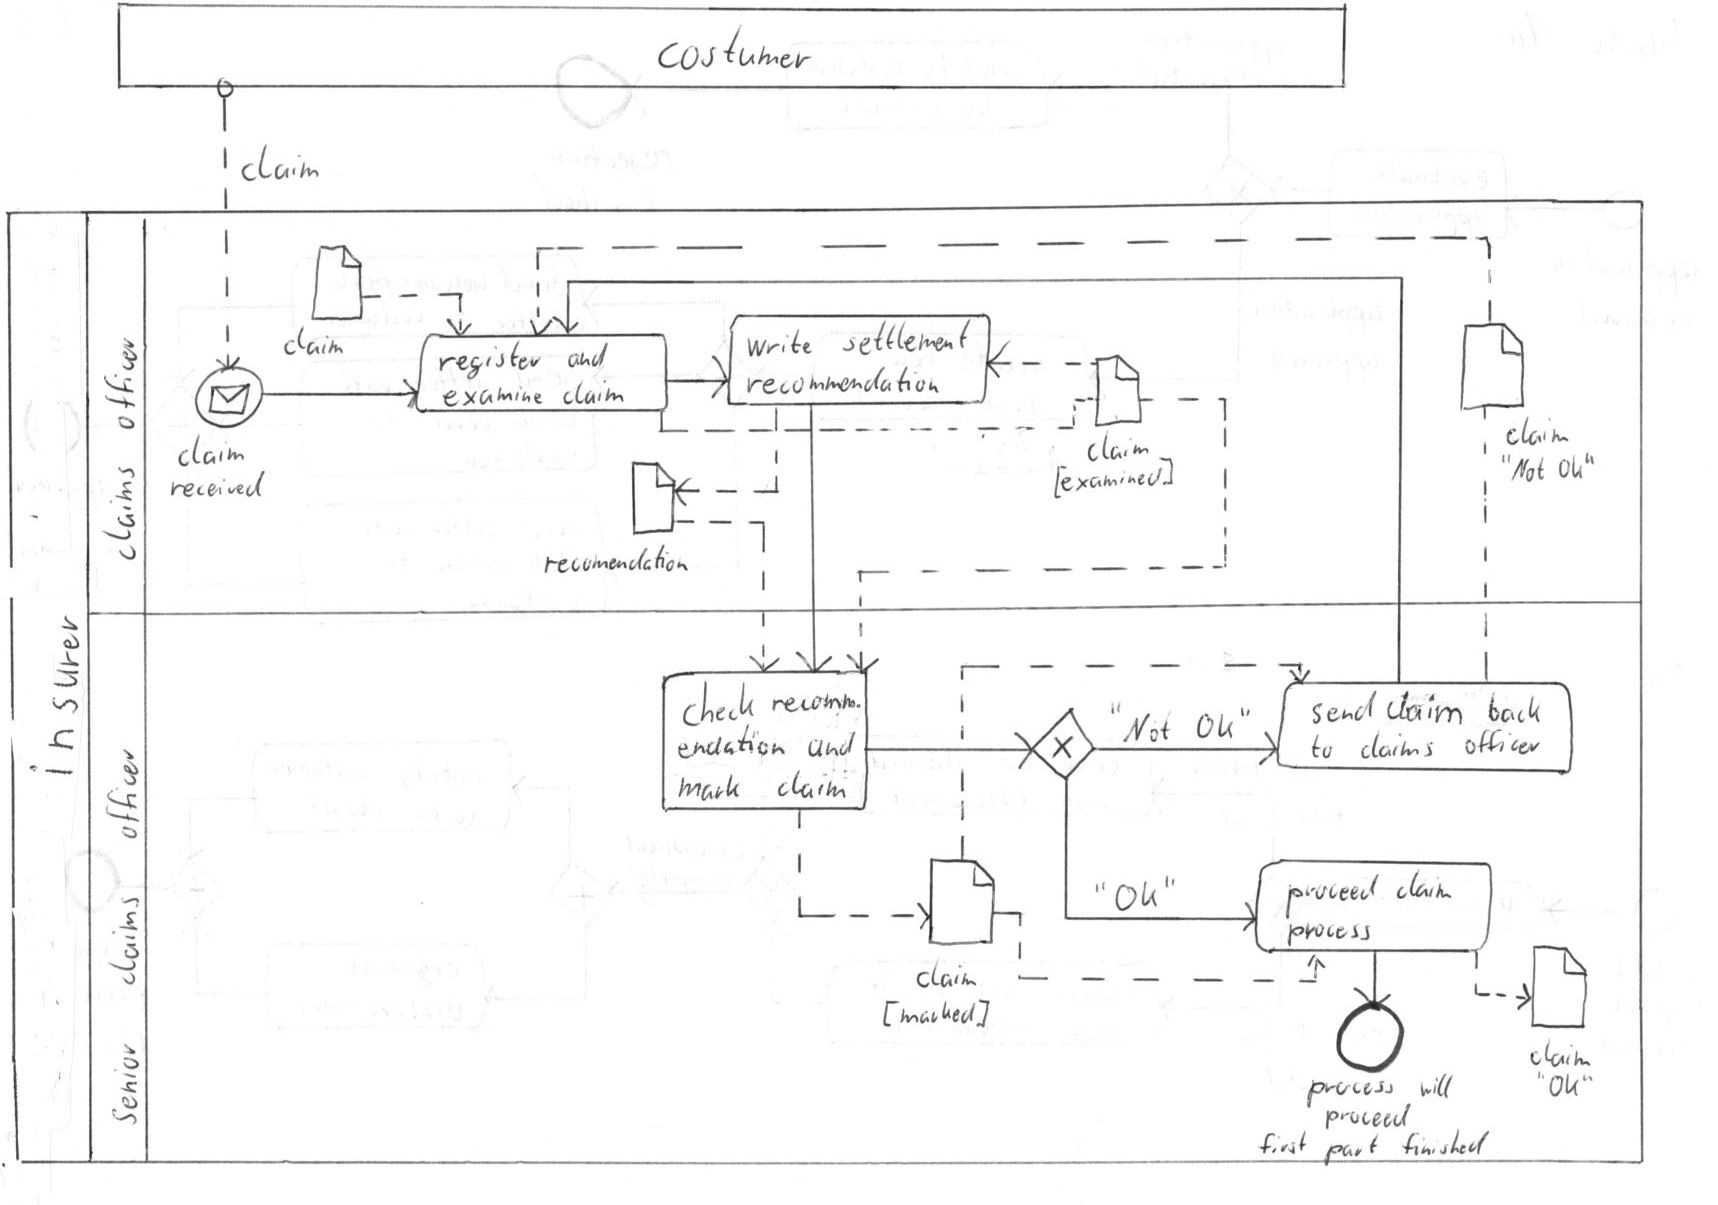 costumer
claim
insurer
claims officer
claim
claim
received
register and
examine claim
write settlement
recommendation
claim
[examined]
recomendation
claim
"Not Ok"
senior claims officer
check recomm.
endation and
mark claim
"Not Ok"
send claim back
to claims officer
"Ok"
proceed claim
process
claim
[marked]
process will
proceed
first part finished
claim
"Ok"